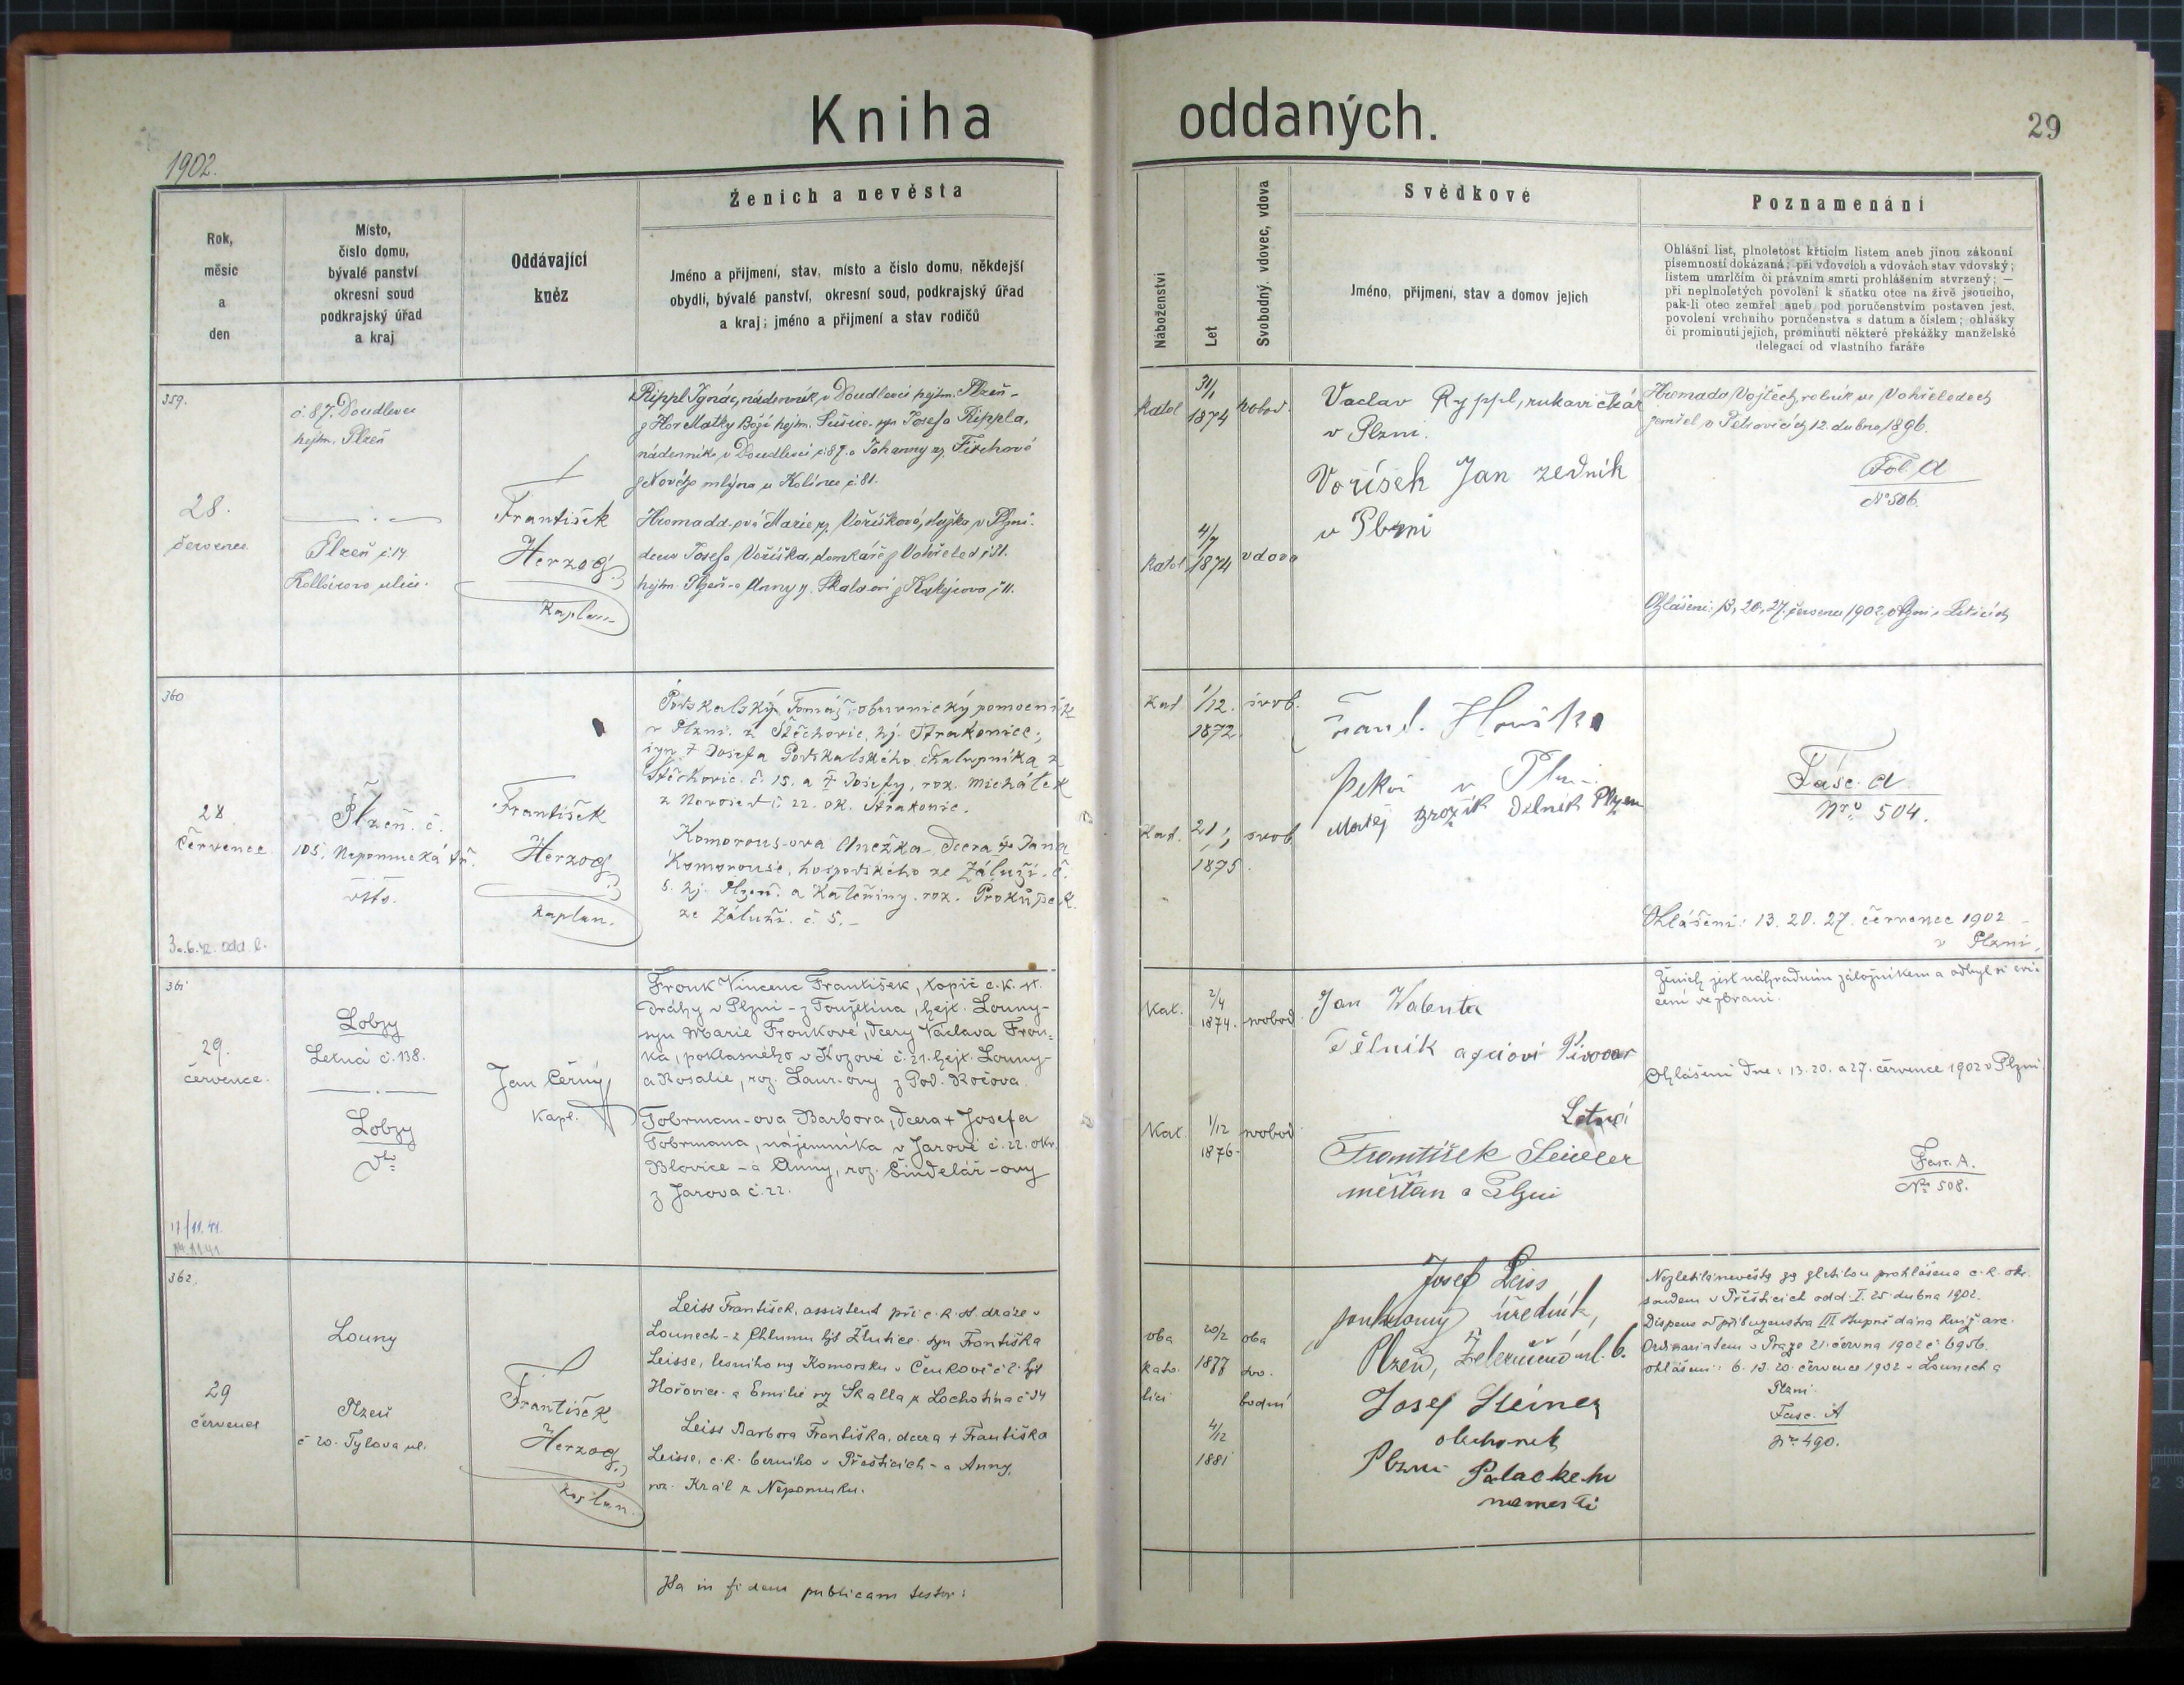 Kniha oddaných.
29
1902.
Rok,
měsíc
a
den
Místo,
číslo domu,
bývalé panství
okresní soud
podkrajský úřad
a kraj
Oddávající
kněz
Ženich a nevěsta
Jméno a příjmení, stav, místo a číslo domu, někdejší
obydlí, bývalé panství, okresní soud, podkrajský úřad
a kraj; jméno a příjmení a stav rodičů
Náboženství
Let
Svobodný, vdovec, vdova
Svědkové
Jméno, příjmení, stav a domov jejich
Poznamenání
Ohlášní list, plnoletost křticím listem aneb jinou zákonní
písemností dokázaná; při vdovcích a vdovách stav vdovský;
listem umrlčím či právním smrti prohlášením stvrzený; —
při neplnoletých povolení k sňatku otce na živě jsoucího,
pak-li otec zemřel aneb pod poručenstvím postaven jest,
povolení vrchního poručenstva s datum a číslem; ohlášky
či prominutí jejich, prominutí některé překážky manželské
delegací od vlastního faráře
359.
28.
července
č. 87. Doudlevce
hejtm. Plzeň
Plzeň č. 14
Kollárova ulice.
František
Herzog
Kaplan
Rippl Ignác, nádenník v Doudlevci hejtm. Plzeň -
z Hor Matky Boží hejtm. Sušice. syn Josefa Rippla,
nádenníka v Doudlevci č 87. a Johanny
z Nového mlýna u Kolince č 81.
Hromadd-ová Marie roz. Voříšková, služka v Plzni.
dcera Josefa Voříška, domkáře z Vohřeled č 31.
hejtm. Plzeň - a Anny
katol
31/1
1874
svobod.
katol
4/7
1874
vdova
Vaclav Ryppl, rukavičkář
v Plzni.
Voříšek Jan zedník
v Plzni
Hromada Vojtěch, rolník ve Vohřeledech
zemřel v Petrovicích 12. dubna 1896.
Fol A
No 506.
Ohlášení: 13, 20, 27. července 1902 v Plzni
360
28
Července
30.6.42. odd. l.
Plzeň. č.
105. Nepomucká tř.
František
Herzog
Kaplan.
Podskalský Tomáš, obuvnický pomocník
v Plzni. z Štěchovic, hj. Strakonice;
syn † Josefa Podskalského, chalupníka z
Štěchovic. č. 15. a † Josefy, roz. Michálek
z Novosed č. 22. ok. Strakonic.
Komorous-ova Anežka dcera † Jana
Komorouse, hospodského ze Záluží. č.
5. hj. Plzeň. a Kateřiny. roz. Prokůpek.
ze Záluží. č. 5. -
Kat.
1/12.
1872
svob.
Kat.
21/1
1875.
svob
Matěj Brožík Dělník Plzeň
Fasc. A
Nro 504.
Ohlášení: 13. 20. 27. července 1902 -
v Plzni,
361
29.
července.
17/11.41.
Lobzy
Letná č. 138.
Lobzy
Jan Černý
Kapl.
Fronk Vincenc František, topič c. k. st.
dráhy v Plzni - z Toužetína, hejt. Louny -
syn Marie Fronkové, dcery Václava Fron-
ka, poklasného v Kozově č. 21. hejt. Louny -
a Rosalie, roz. Laur-ovy z Pod. Ročova.
Tobrman-ova Barbora, dcera † Josefa
Tobrmana, nájemníka v Jarově č. 22. okr.
Blovice - a Anny, roz. Šindelář-ovy
z Jarova č. 22.
Kat.
2/4
1874.
svobod.
Kat.
1/12
1876-
svobod
Jan Valenta
Dělník akciovi Pivovar
František
měšťan v Plzni
Ženich jest náhradním záložníkem a odbyl si cvi-
čení ve zbrani.
Ohlášení dne: 13. 20. a 27. července 1902 v Plzni.
Fasc. A.
No 508.
362.
29
července
Louny
Plzeň
č 20. Tylova ul.
František
Herzog
Kaplan.
Leiss František, assistent při c. k. st. dráze v
Lounech - z Chlumu hjt Žlutice. syn Františka
Leisse, lesního na Komorsku v Čenkově č 2 hjt
Hořovice - a Emilie roz Skalla z Lochotína č 34
Leiss Barbora Františka, dcera † Františka
Leisse, c. k. berního v Přešticích - a Anny,
roz. Král z Nepomuku.
oba
kato-
líci
20/2
1877
4/12
1881
oba
svo-
bodní
Josef Leiss
soukromý úředník,
Plzeň, Železniční ul. 6.
Josef Steiner
obchodník
Plzni Palackeho
namesti
Nezletilá nevěsta za zletilou prohlášena c. k. okr.
soudem v Přešticích odd. I. 25. dubna 1902.
Dispens od příbuzenstva III stupně dána kníž. arc.
Ordinariatem v Praze 21. června 1902 č 6956.
ohlášení: 6. 13. 20. července 1902 v Lounech a
Plzni.
Fasc. A
Nro 490.
Ita in fidem publicam testor: